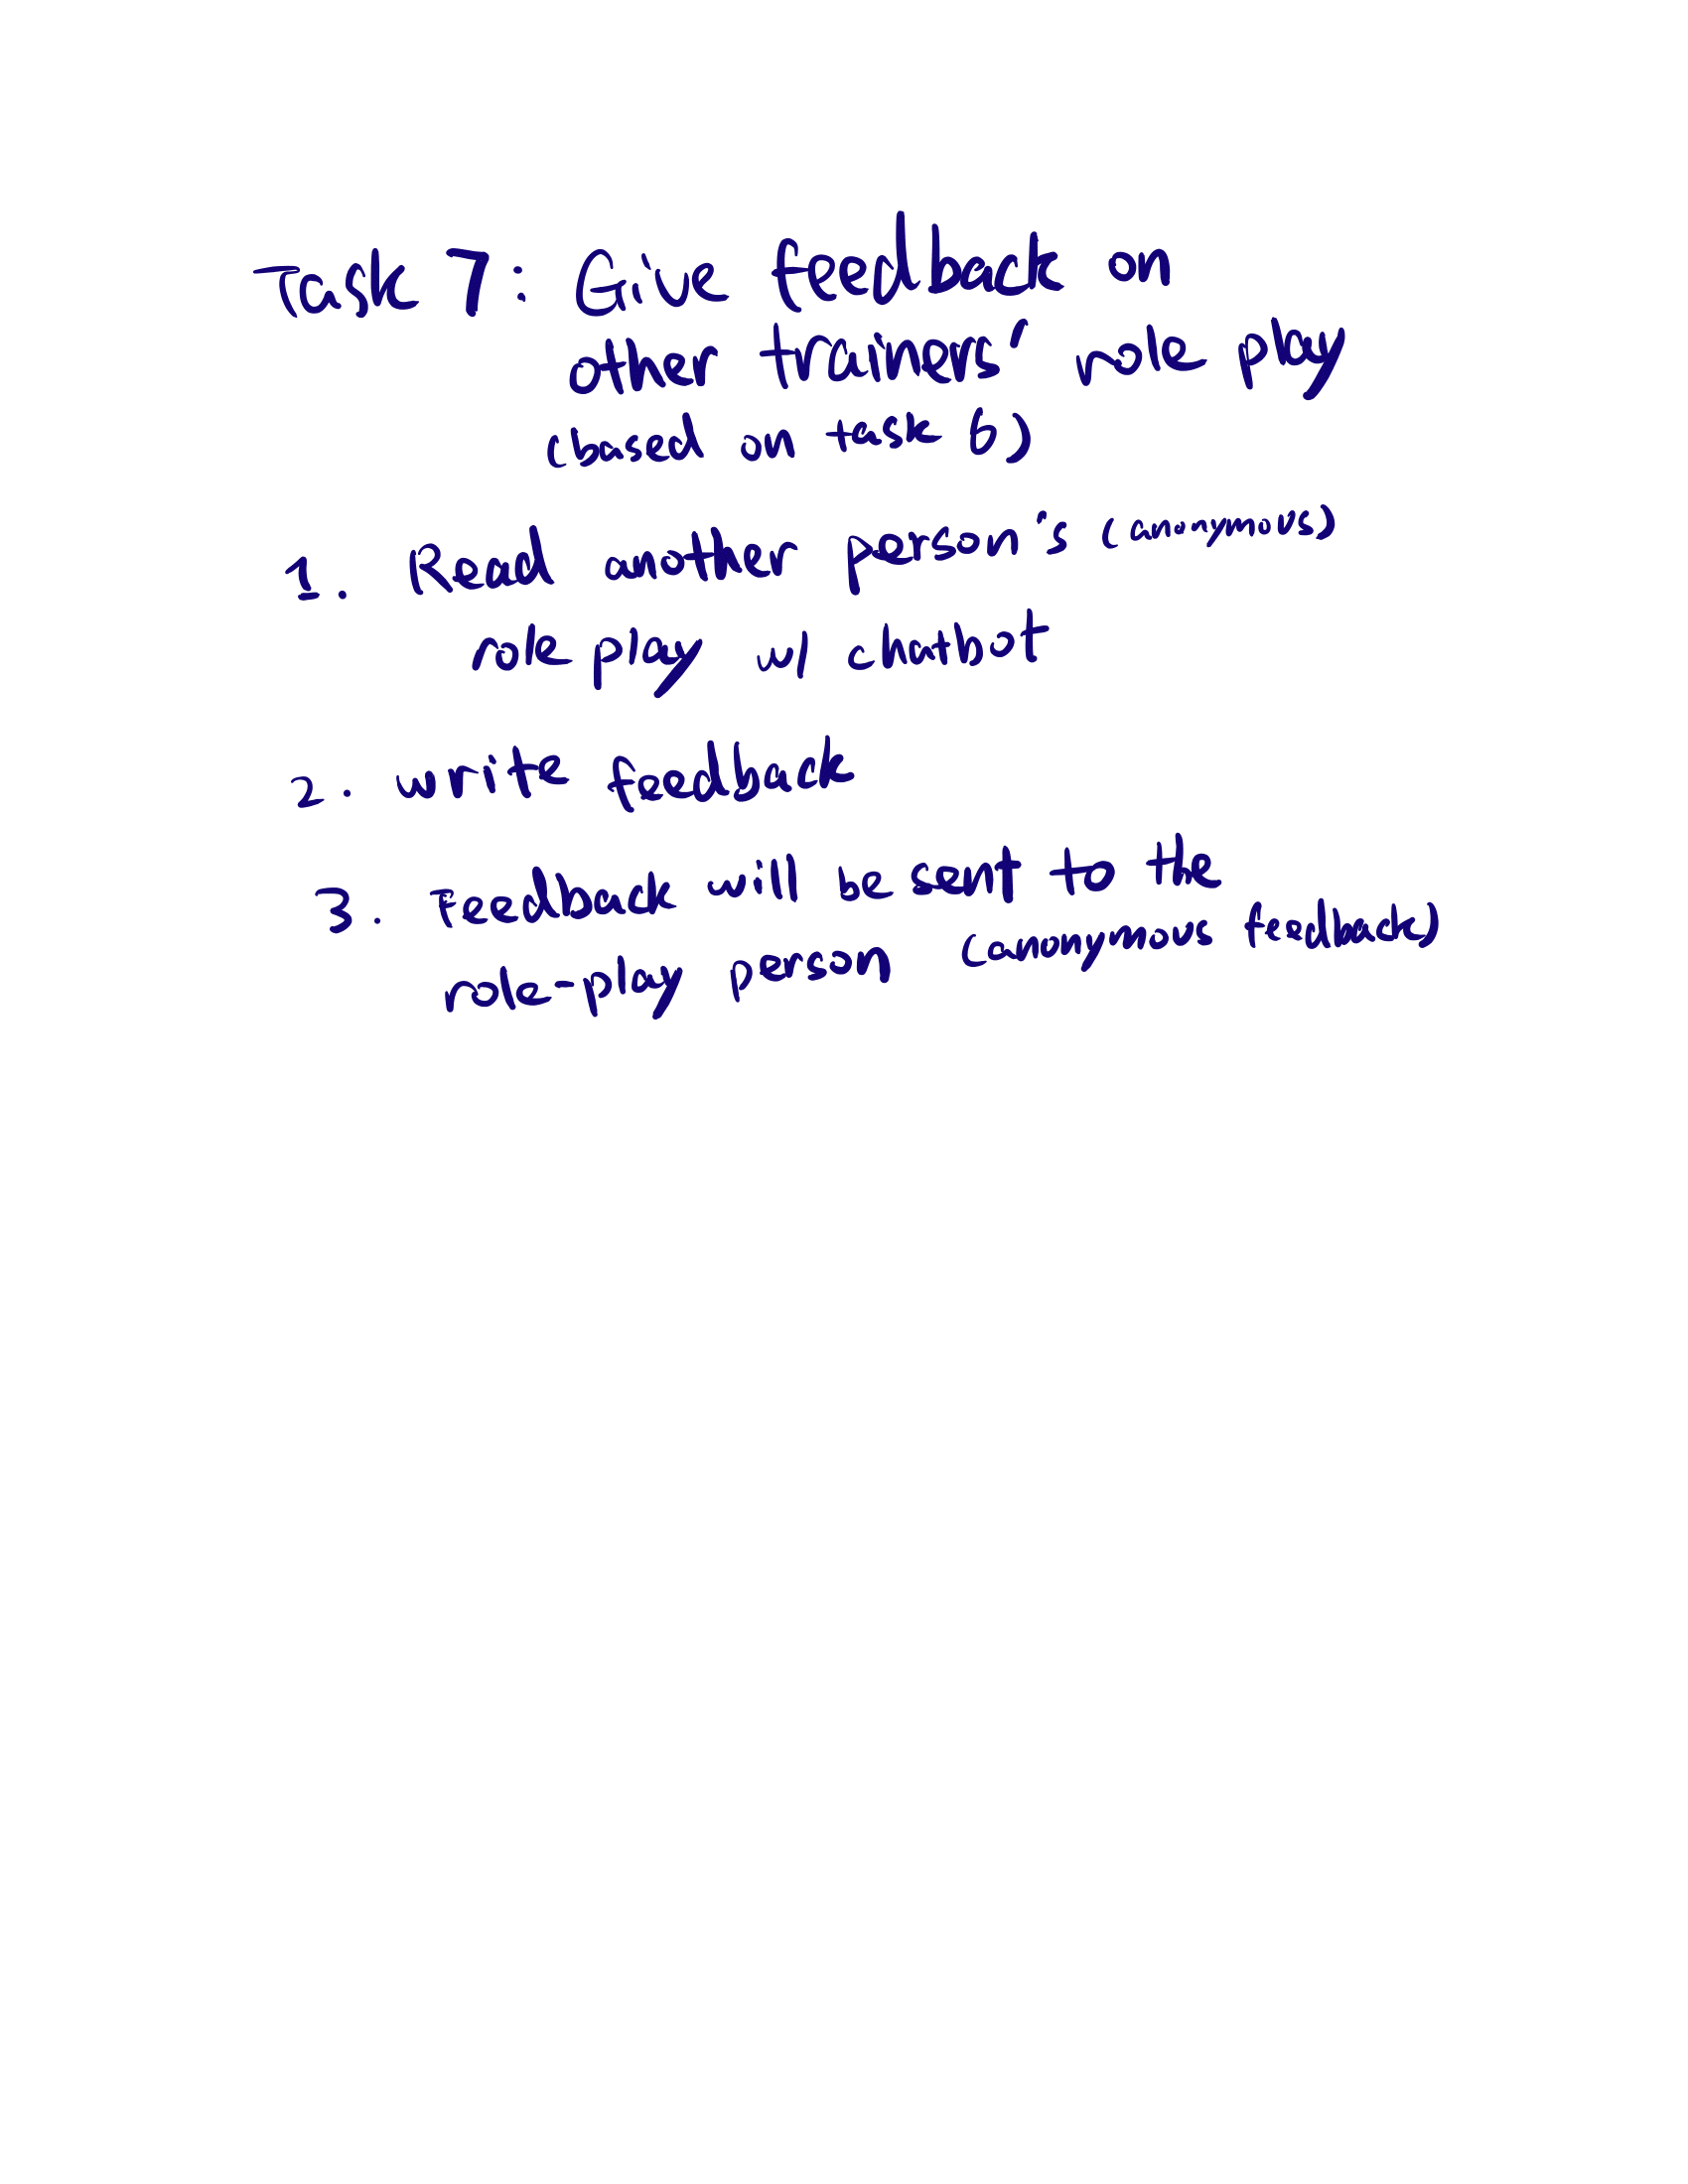 Task 7: Give feedback on
other trainers' role play
(based on task 6)
1. Read another person's (anonymous)
role play w/ chatbot
2. write feedback
3. Feedback will be sent to the
role-play person (anonymous feedback)